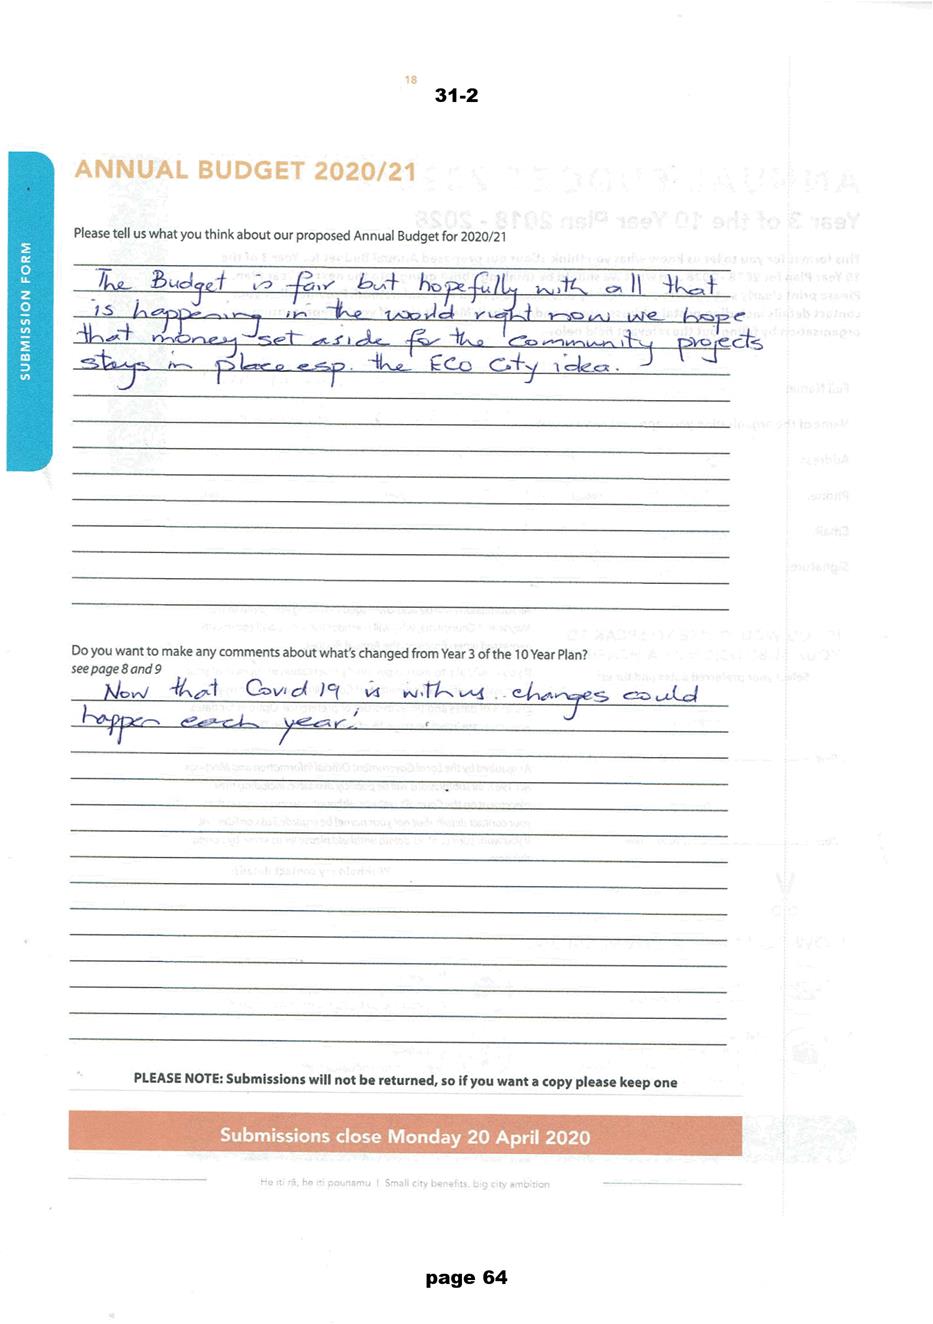 18
31-2
SUBMISSION FORM
ANNUAL BUDGET 2020/21
Please tell us what you think about our proposed Annual Budget for 2020/21
The Budget is fair but hopefully with all that
is happening in the world right now we hope
that money set aside for the Community projects
stays in place esp. the ECO City idea.
Do you want to make any comments about what's changed from Year 3 of the 10 Year Plan?
see page 8 and 9
Now that Covid 19 is with us changes could
happen each year!
PLEASE NOTE: Submissions will not be returned, so if you want a copy please keep one
Submissions close Monday 20 April 2020
He iti rā, he iti pounamu | Small city benefits, big city ambition
page 64